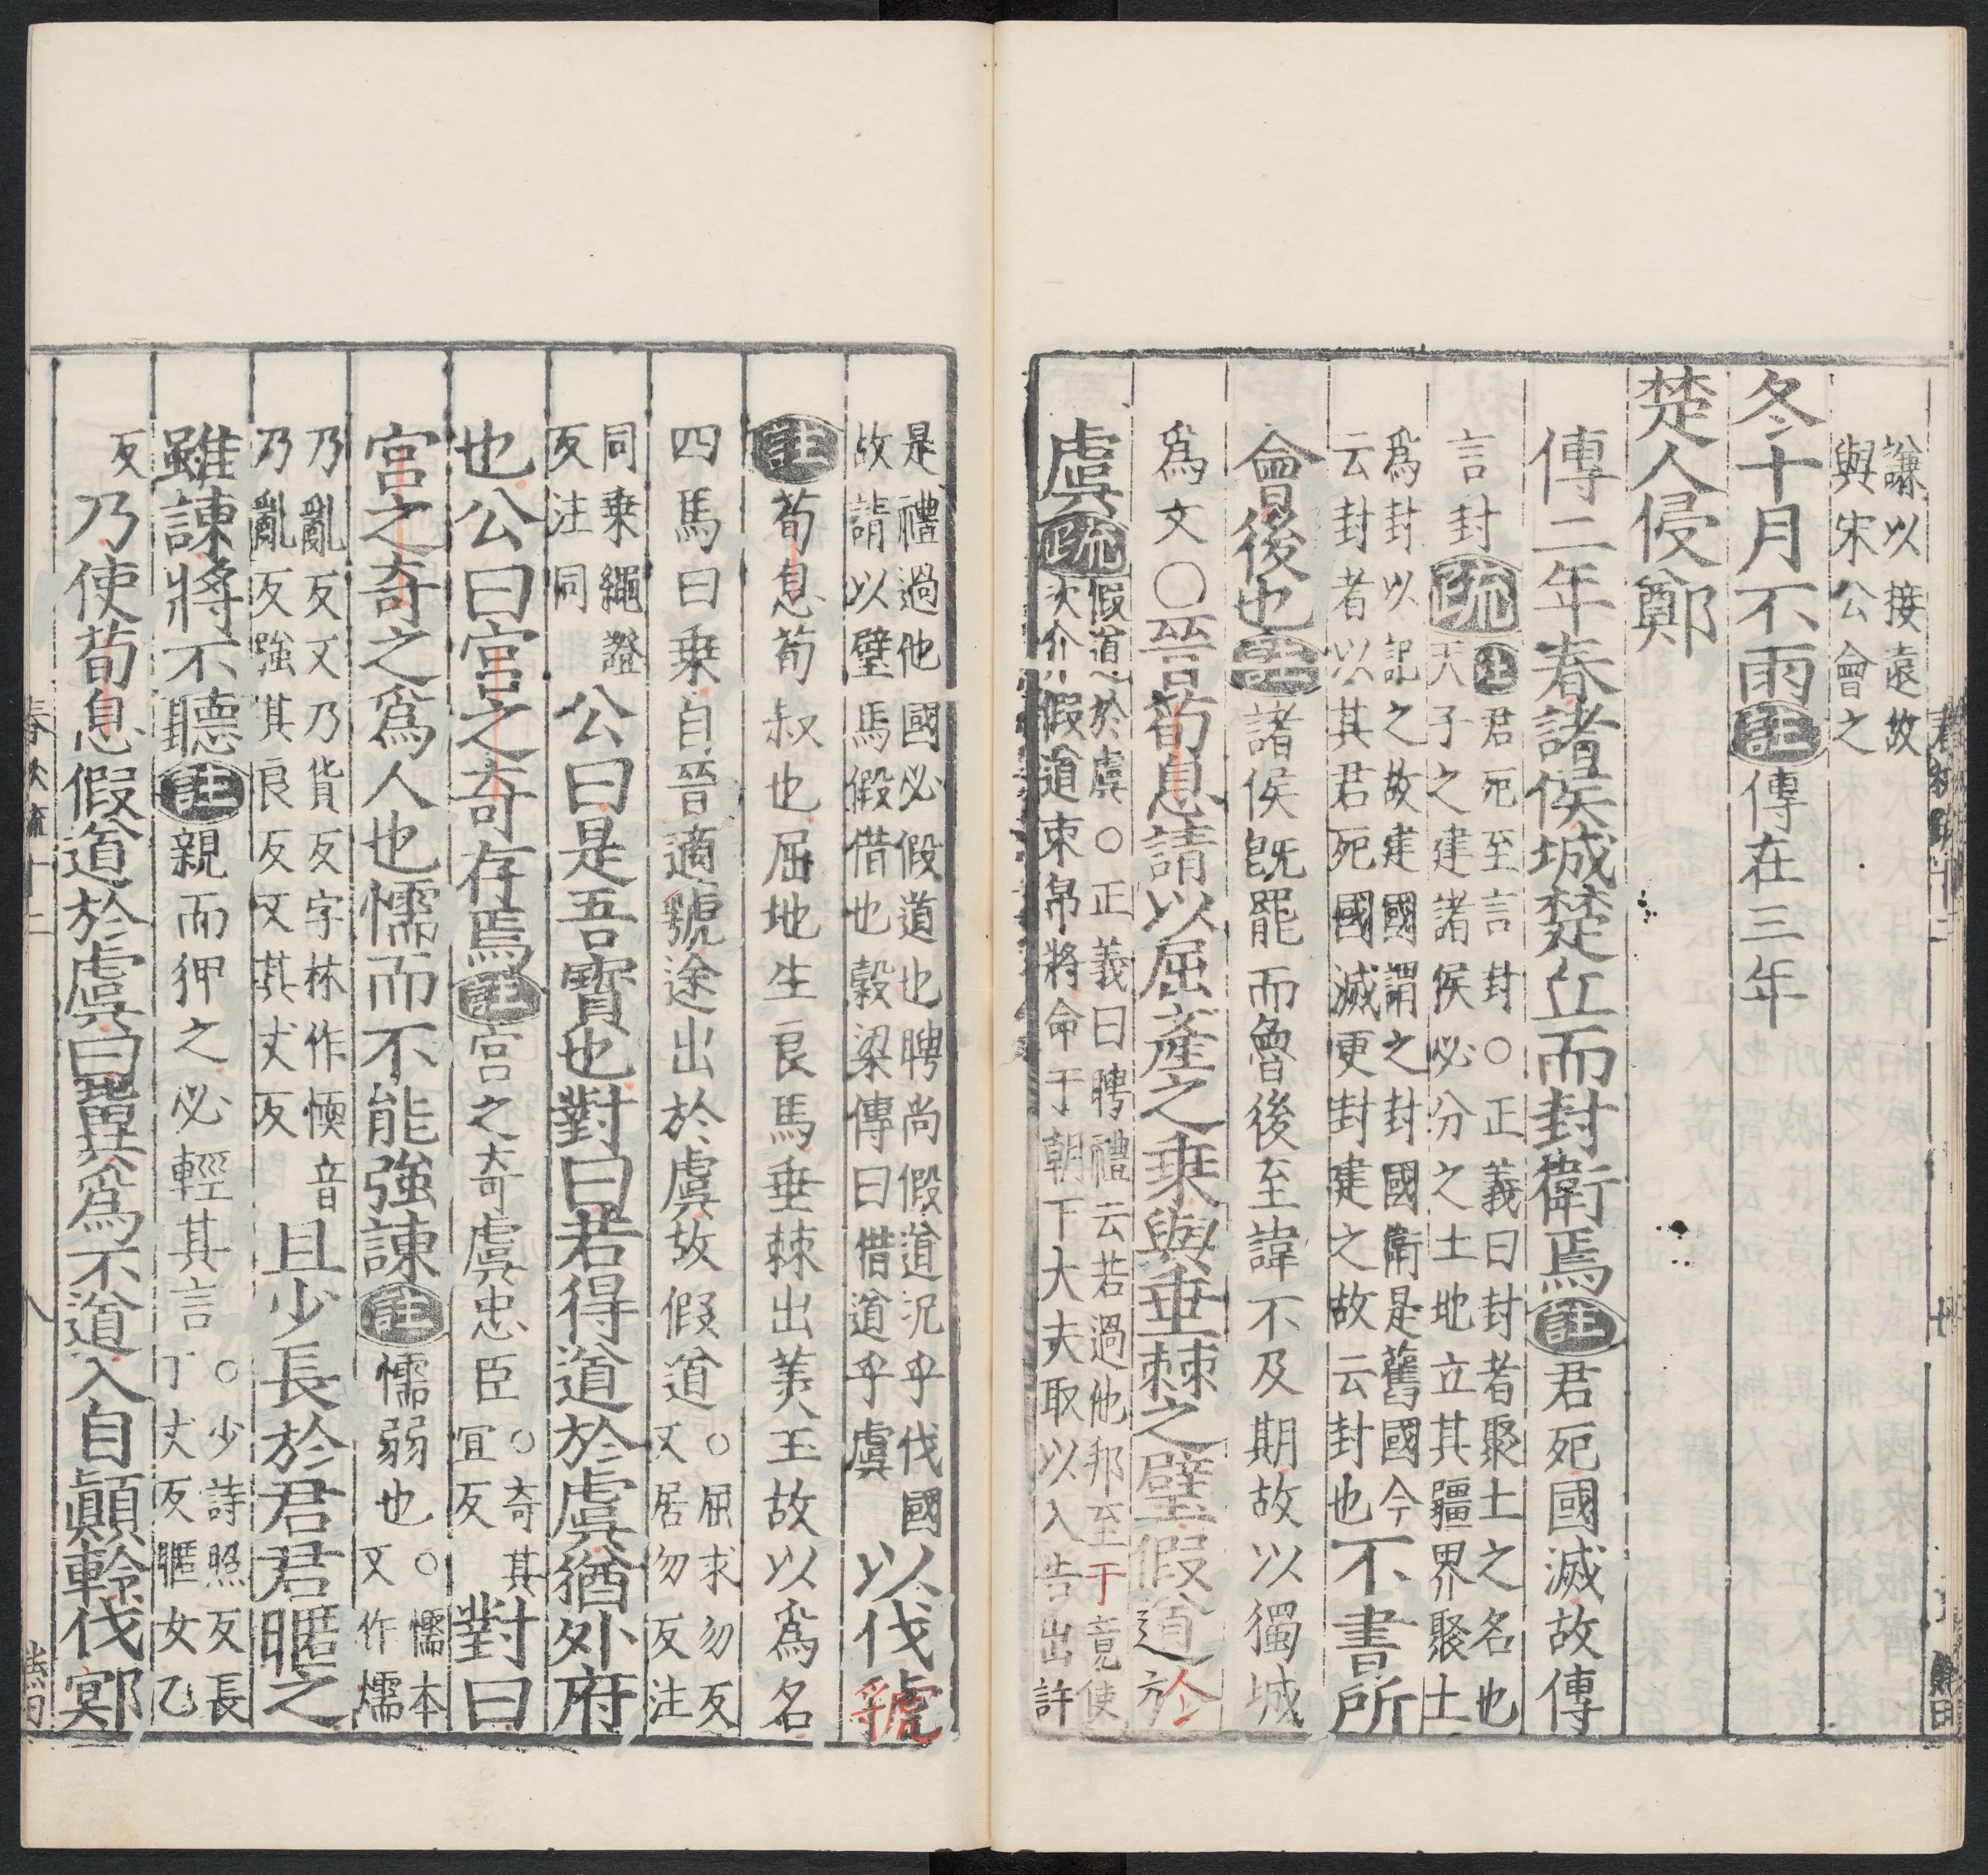 謙以接遠故
與宋公會之
冬十月不雨註傳在三年
楚人侵鄭
傳二年春諸侯城楚丘而封衛焉註君死國滅故傳
言封疏註君死至言封○正義曰封者聚土之名也
天子之建諸侯必分之土地立其疆界聚土
爲封以記之故建國謂之封國衛是舊國今
云封者以其君死國滅更封建之故云封也不書所
會後也註諸侯旣罷而魯後至諱不及期故以獨城
爲文○晉荀息請以屈產之乗與垂棘之璧假道於
虞疏假道於虞○正義曰聘禮云若過他邦至于竟使
次介假道束帛將命于朝下大夫取以入告出許
是禮過他國必假道也聘尚假道況乎伐國
故請以璧馬假借也穀梁傳曰借道乎虞以伐虢
註荀息荀叔也屈地生良馬垂棘出美玉故以爲名
四馬曰乗自晉適虢途出於虞故假道○屈求勿反
又居勿反注
同乗繩證
反注同公曰是吾寳也對曰若得道於虞猶外府
也公曰宫之奇存焉註宫之奇虞忠臣○奇其
宜反對曰
宫之奇之爲人也懦而不能強諫註懦弱也○懦本
又作㦬
乃亂反又乃貨反字林作愞音
乃亂反強其良反又其丈反且少長於君君暱之
雖諫將不聽註親而狎之必輕其言○少詩照反長
丁丈反暱女乙
反乃使荀息假道於虞曰冀爲不道入自顚軨伐鄍